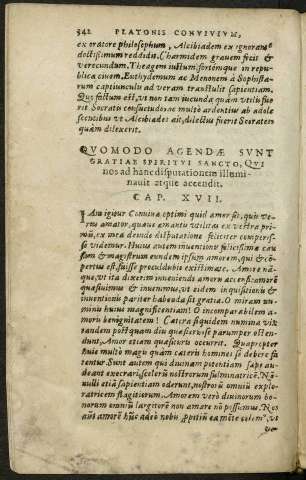 542 PLATONIS CONVIVIVM,
ex oratore philosophum, Alcibiadem ex ignorante
doctissimum reddidit. Charmidem grauem fecit &
verecundum. Theagem iustum, fortémque in repu-
blica ciuem. Euthydemum ac Menonem à Sophista-
rum captiunculis ad veram transtulit sapientiam.
Quo factum est, vt non tam iucunda quàm vtilis fue-
rit Socratis consuetudo, ac multò ardentius ab adole
scentibus vt Alcibiades ait, dilectus fuerit Socrates
quàm dilexerit.
QVOMODO AGENDÆ SVNT
GRATIAE SPIRITVI SANCTO, QVI
nos ad hanc disputationem illumi-
nauit atque accendit.
CAP. XVII.
IAm igitur Conuiuæ optimi quid amor sit, quis ve-
rus amator, quæue amantis vtilitas ex vestra pri-
mùm, ex mea deinde disputatione feliciter comperis-
se videmur. Huius autem inuentionis felicissimæ cau
sam & magistrum eundem ipsum amorem, qui & co
pertus est, fuisse proculdubio existimate. Amore nā-
que, vt ita dixerim inueniendi amoris accensi amorē
quæsiuimus & inuenimus, vt eidem inquisitionis &
inuentionis pariter habenda sit gratia. O miram nu-
minis huius magnificentiam! O incomparabilem a-
moris benignitatem! Cætera siquidem numina vix
tandem postquam diu quæsieris se parumper osten-
dunt. Amor etiam quæsituris occurrit. Quapropter
huic multò magis quàm cæteris homines se debere fa
tentur. Sunt autem qui diuinam potentiam sæpe au-
deant execrari, scelerū nostrorum fulminatricē. Nō-
nulli etiā sapientiam oderunt, nostrorū omniū explo-
ratricem flagitiorum. Amorem verò diuinorum bo-
norum omniū largitorē non amare nō possumus. Nos